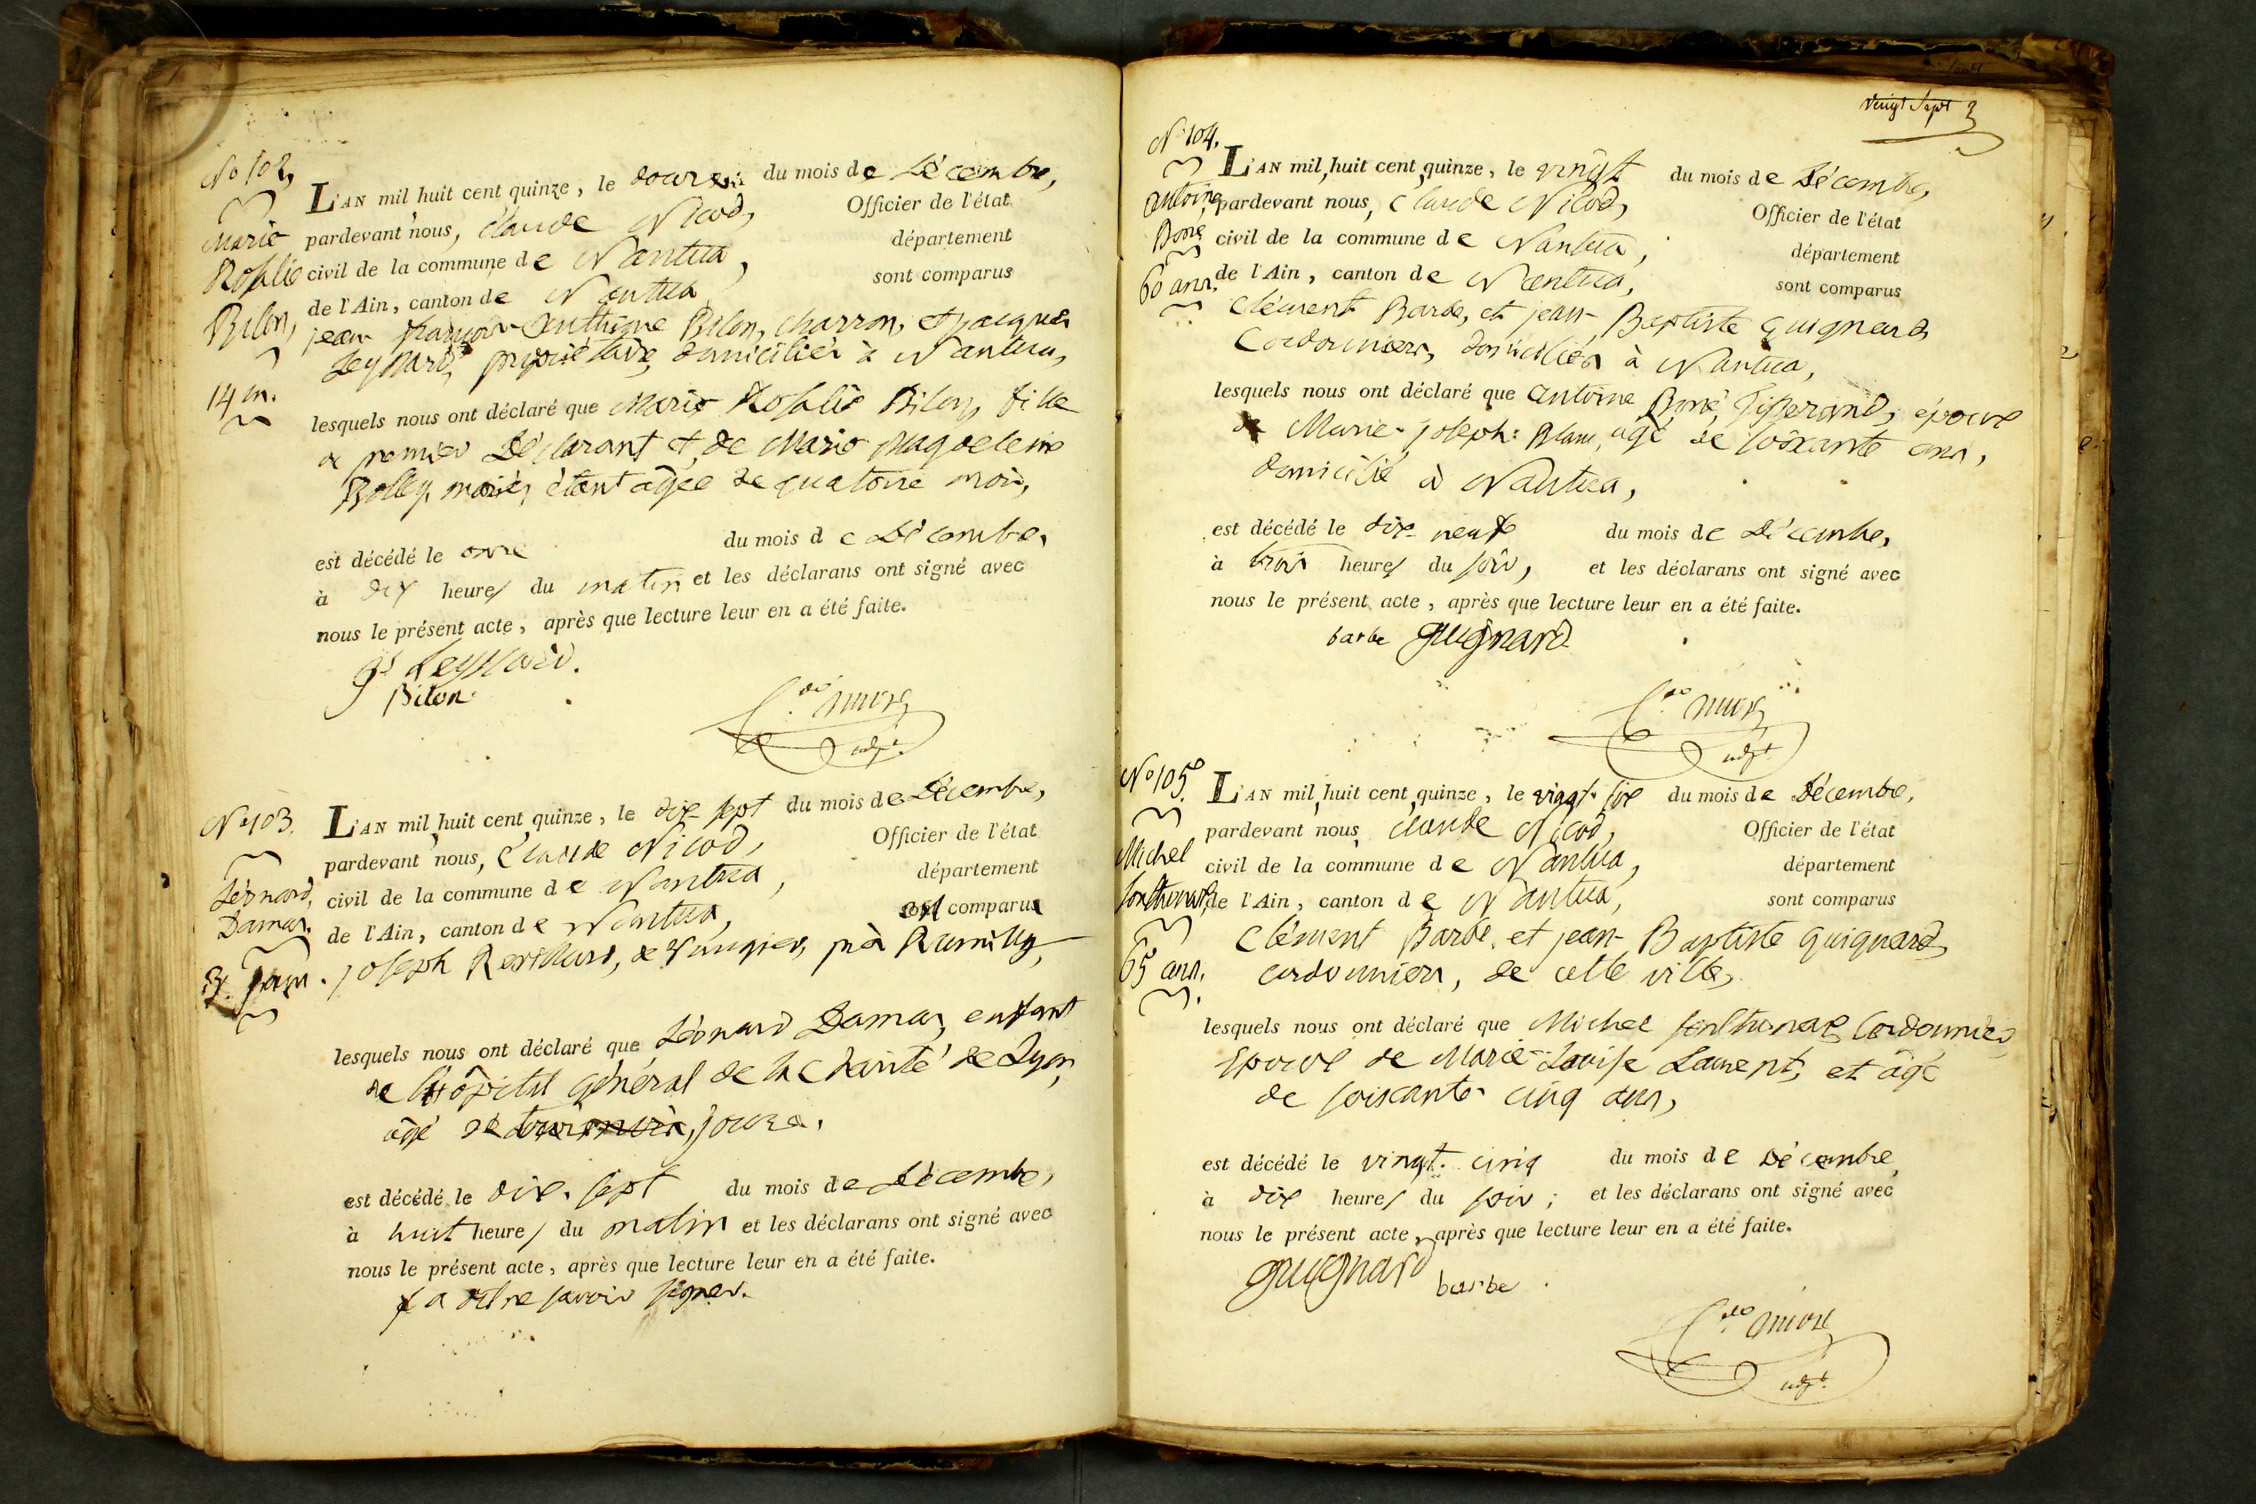 No 102,
Marie
Rosalie
Bilon,
14 m.
L'AN mil huit cent quinze, le douze du mois de Décembre,
pardevant nous, Claude Nicod, Officier de l'état
civil de la commune de Nantua, département
de l'Ain, canton de Nantua, sont comparus
jean françois Anthime Bilon, charron, et jacques
Leyssard, propriétaire, domiciliés à Nantua,
lesquels nous ont déclaré que Marie Rosalie Bilon, fille
du premier Déclarant et de Marie Magdeleine
Bolley, mariés, étant âgée de quatorze mois,
est décédé le onze du mois de Décembre,
à dix heures du matin et les déclarans ont signé avec
nous le présent acte, après que lecture leur en a été faite.
Leyssard.
Bilon
No 103.
Léonard,
Damas.
jours.
L'AN mil huit cent quinze, le dix-sept du mois de Décembre,
pardevant nous, Claude Nicod, Officier de l'état
civil de la commune de Nantua, département
de l'Ain, canton de Nantua, est comparu
joseph de près Rumilly,
lesquels nous ont déclaré que Léonard Damas, enfant
de l'hôpital général de la Charité de Lyon,
âgé de jours.
est décédé le dix-sept du mois de Décembre,
à huit heures du matin et les déclarans ont signé avec
nous le présent acte, après que lecture leur en a été faite.
savoir signer.
Vingt Sept
No 104.
antoine
Boné
60 ans.
L'AN mil huit cent quinze, le vingt du mois de Décembre,
pardevant nous, Claude Nicod, Officier de l'état
civil de la commune de Nantua, département
de l'Ain, canton de Nantua, sont comparus
Clément Barbe, et jean-Baptiste guignard,
Cordonniers, domiciliés à Nantua,
lesquels nous ont déclaré que antoine Boné, Tisserand, époux
de Marie-joseph: Blanc, âgé de soixante ans,
domicilié à Nantua,
est décédé le dix-neuf du mois de Décembre,
à trois heures du soir, et les déclarans ont signé avec
nous le présent acte, après que lecture leur en a été faite.
barbe guignard
No 105.
Michel
65 ans.
L'AN mil huit cent quinze, le vingt-six du mois de Décembre,
pardevant nous Claude Nicod, Officier de l'état
civil de la commune de Nantua, département
de l'Ain, canton de Nantua, sont comparus
Clément Barbe, et jean-Baptiste guignard,
cordonniers, de cette ville,
lesquels nous ont déclaré que Michel Cordonnier,
époux de Marie-Louise Laurent, et âgé
de soixante-cinq ans,
est décédé le vingt-cinq du mois de Décembre,
à dix heures du soir; et les déclarans ont signé avec
nous le présent acte, après que lecture leur en a été faite.
guignard barbe